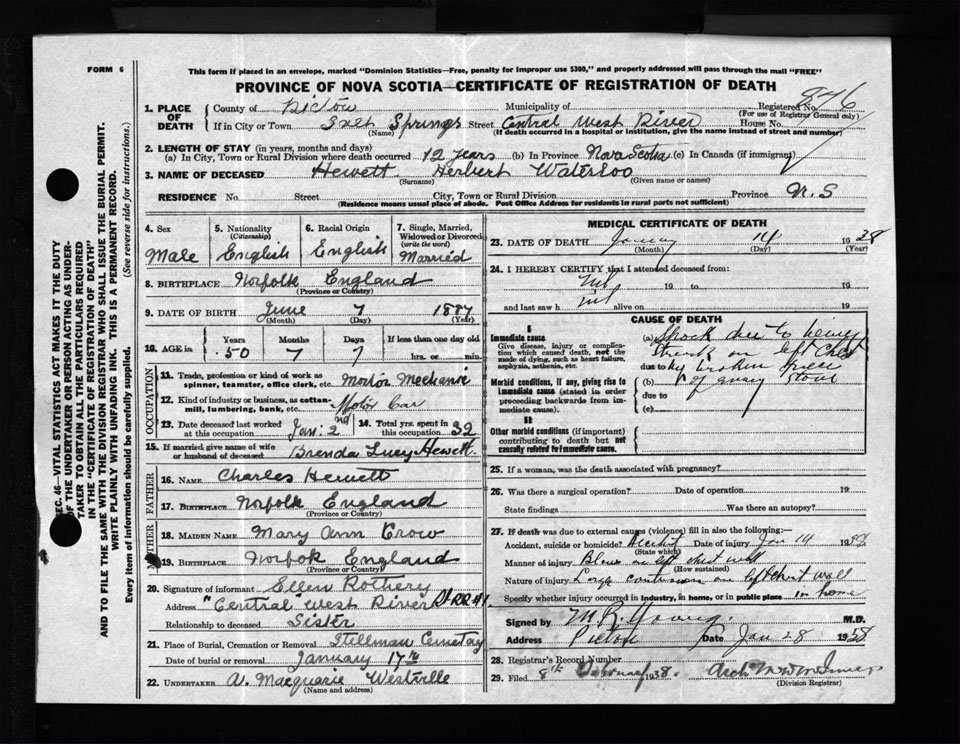 FORM 6
This form if placed in an envelope, marked "Dominion Statistics—Free, penalty for improper use $300," and properly addressed will pass through the mail "FREE"
PROVINCE OF NOVA SCOTIA—CERTIFICATE OF REGISTRATION OF DEATH
Registered No. 876
(For use of Registrar General only)
1. PLACE OF DEATH
County of Pictou
Municipality of
If in City or Town Salt Springs Street Central West River House No.
(Name) (If death occurred in a hospital or institution, give the name instead of street and number)
2. LENGTH OF STAY (in years, months and days)
(a) In City, Town or Rural Division where death occurred 12 years (b) In Province Nova Scotia (c) In Canada (if immigrant)
3. NAME OF DECEASED Hewett Herbert Waterloo
(Surname) (Given name or names)
RESIDENCE No. Street City, Town or Rural Division Province N.S
(Residence means usual place of abode. Post Office Address for residents in rural parts not sufficient)
4. Sex Male
5. Nationality (Citizenship) English
6. Racial Origin English
7. Single, Married, Widowed or Divorced (write the word) Married
8. BIRTHPLACE Norfolk England
(Province or Country)
9. DATE OF BIRTH June 7 1887
(Month) (Day) (Year)
10. AGE in Years Months Days If less than one day old
50 7 7 hrs. or min.
OCCUPATION
11. Trade, profession or kind of work as spinner, teamster, office clerk, etc. Mortor Mechanic
12. Kind of industry or business, as cotton-mill, lumbering, bank, etc. Motor Car
13. Date deceased last worked at this occupation Jan. 2nd
14. Total yrs. spent in this occupation 32
15. If married give name of wife or husband of deceased Brenda Lucy Hewett
FATHER
16. NAME Charles Hewett
17. BIRTHPLACE Norfolk England
(Province or Country)
18. MAIDEN NAME Mary Ann Crow
19. BIRTHPLACE Norfok England
(Province or Country)
20. Signature of informant Ellen Rothery
Address "Central West River RR#1
Relationship to deceased Sister
21. Place of Burial, Cremation or Removal Stillman Cemetay
Date of burial or removal January 17th
22. UNDERTAKER A. Macquarie Westville
(Name and address)
MEDICAL CERTIFICATE OF DEATH
23. DATE OF DEATH January 14 1938
(Month) (Day) (Year)
24. I HEREBY CERTIFY that I attended deceased from:
nil 19 to 19
and last saw h nil alive on 19
CAUSE OF DEATH
Immediate cause
Give disease, injury or complication which caused death, not the mode of dying, such as heart failure, asphyxia, asthenia, etc.
(a) Shock due to being
struck on left Chest
due to by broken piece
Morbid conditions, if any, giving rise to Immediate cause (stated in order proceeding backwards from immediate cause).
(b) of emery stone
due to
(c)
II
Other morbid conditions (if important) contributing to death but not causally related to immediate cause.
25. If a woman, was the death associated with pregnancy?
26. Was there a surgical operation? Date of operation 19
State findings Was there an autopsy?
27. If death was due to external causes (violence) fill in also the following:—
Accident, suicide or homicide? Date of injury Jan 14 1938
(State which)
Manner of injury Blow on left chest wall
(How sustained)
Nature of injury Large contusion on left chest wall
Specify whether injury occurred in industry, in home, or in public place in home
Signed by M.R. Young M.D.
Address Pictou Date Jan 28 1938
28. Registrar's Record Number
29. Filed 8th February 1938.
(Division Registrar)
SEC. 46—VITAL STATISTICS ACT MAKES IT THE DUTY
OF THE UNDERTAKER OR PERSON ACTING AS UNDER-
TAKER TO OBTAIN ALL THE PARTICULARS REQUIRED
IN THE "CERTIFICATE OF REGISTRATION OF DEATH"
AND TO FILE THE SAME WITH THE DIVISION REGISTRAR WHO SHALL ISSUE THE BURIAL PERMIT.
WRITE PLAINLY WITH UNFADING INK. THIS IS A PERMANENT RECORD.
Every item of information should be carefully supplied. (See reverse side for instructions.)